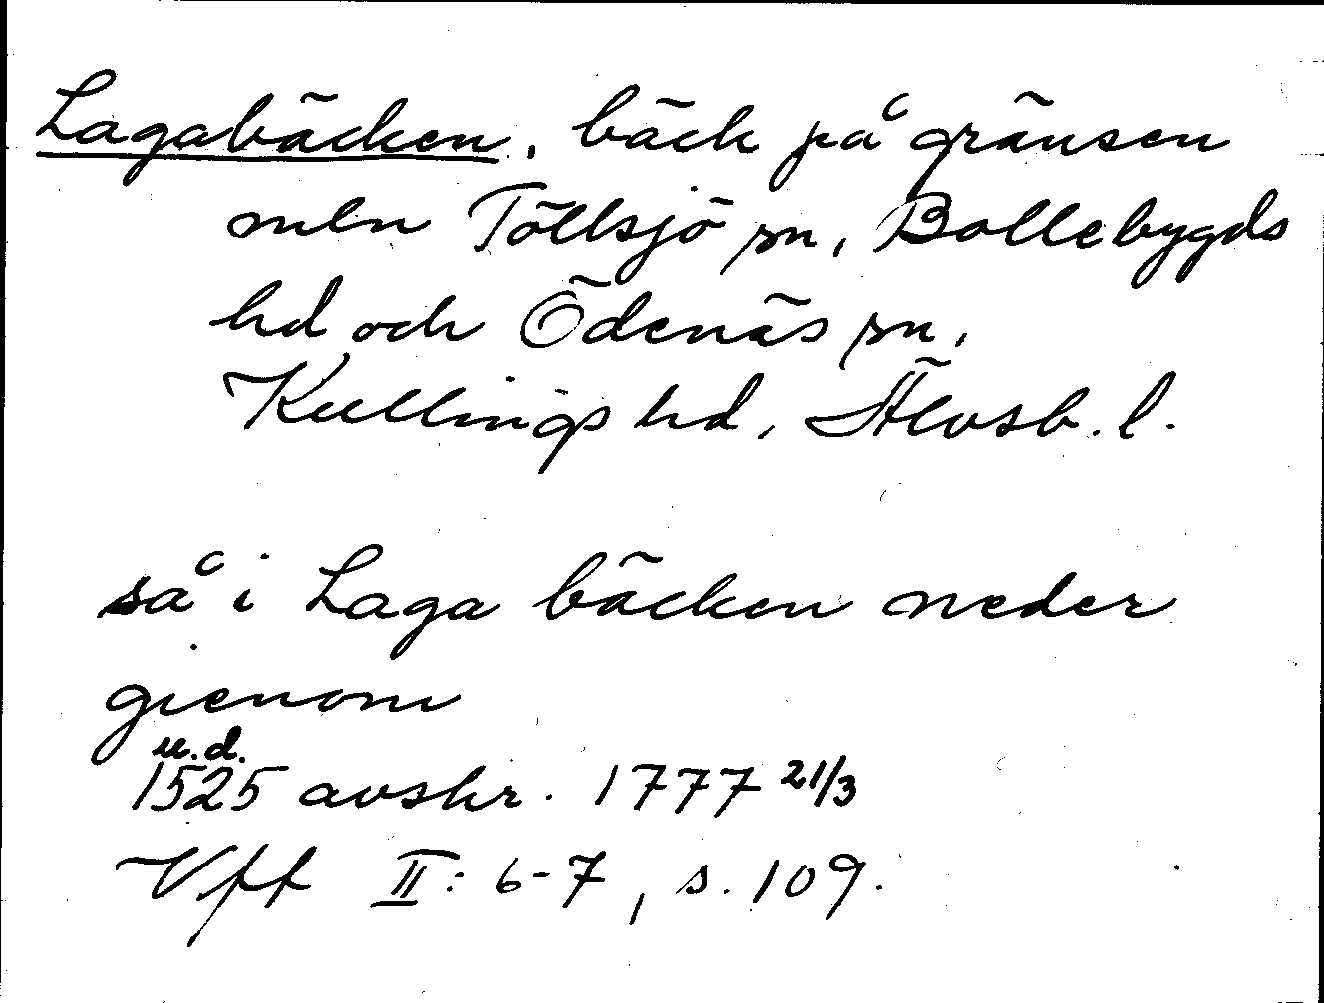 Lagabäcken, bäck på gränsen
mln Töllsjö sn, Bollebygds
hd och Ödenäs sn,
Kullings hd, Älvsb. l.
så i Laga bäcken neder
gienom
u.d.
1525 avskr. 1777 21/3
Vff II: 6-7, s. 109.